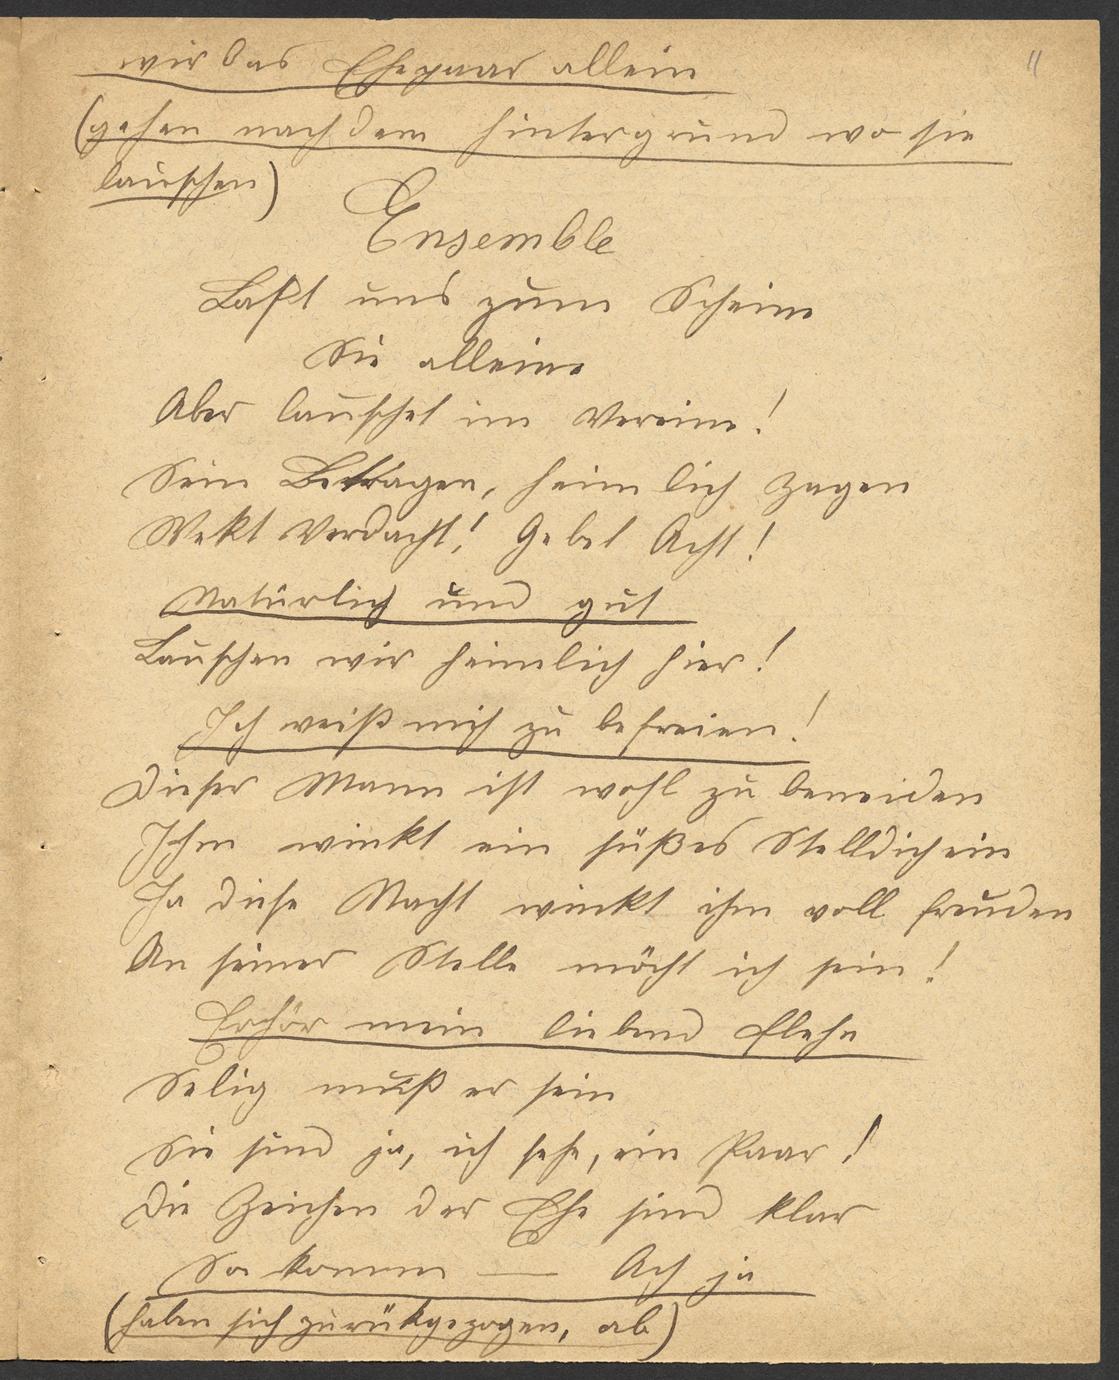 wir das Ehepaar allein
11
(gehen nach dem hintergrund wo sie
lauschen)
Ensemble
Laßt uns zum Scheine
Sie alleine
Aber lauschet im Vereine!
Sein Betragen, heimlich zagen
Wekt Verdacht! Gebet Acht!
Natürlich und gut
Lauschen wir heimlich hier!
Ich weiß mich zu befreien!
Dieser Mann ist wohl zu beneiden
Ihm winkt ein süßes Stelldichein
Ja diese Nacht winkt ihm voll freuden
An seiner Stelle möcht ich sein!
Erhör mein liebend flehn
Selig muß er sein
Sie sind ja, ich sehe, ein Paar!
Die Zeichen der Ehe sind klar
So komm — Ach ja
(haben sich zurükgezogen, ab)